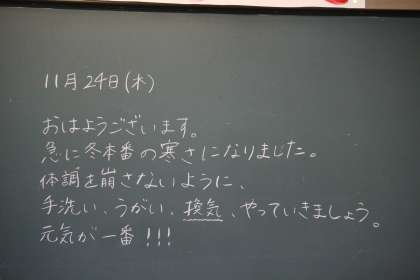 11月24日(木)
おはようございます。
急に冬本番の寒さになりました。
体調を崩さないように、
手洗い、うがい、換気、やっていきましょう。
元気が一番!!!